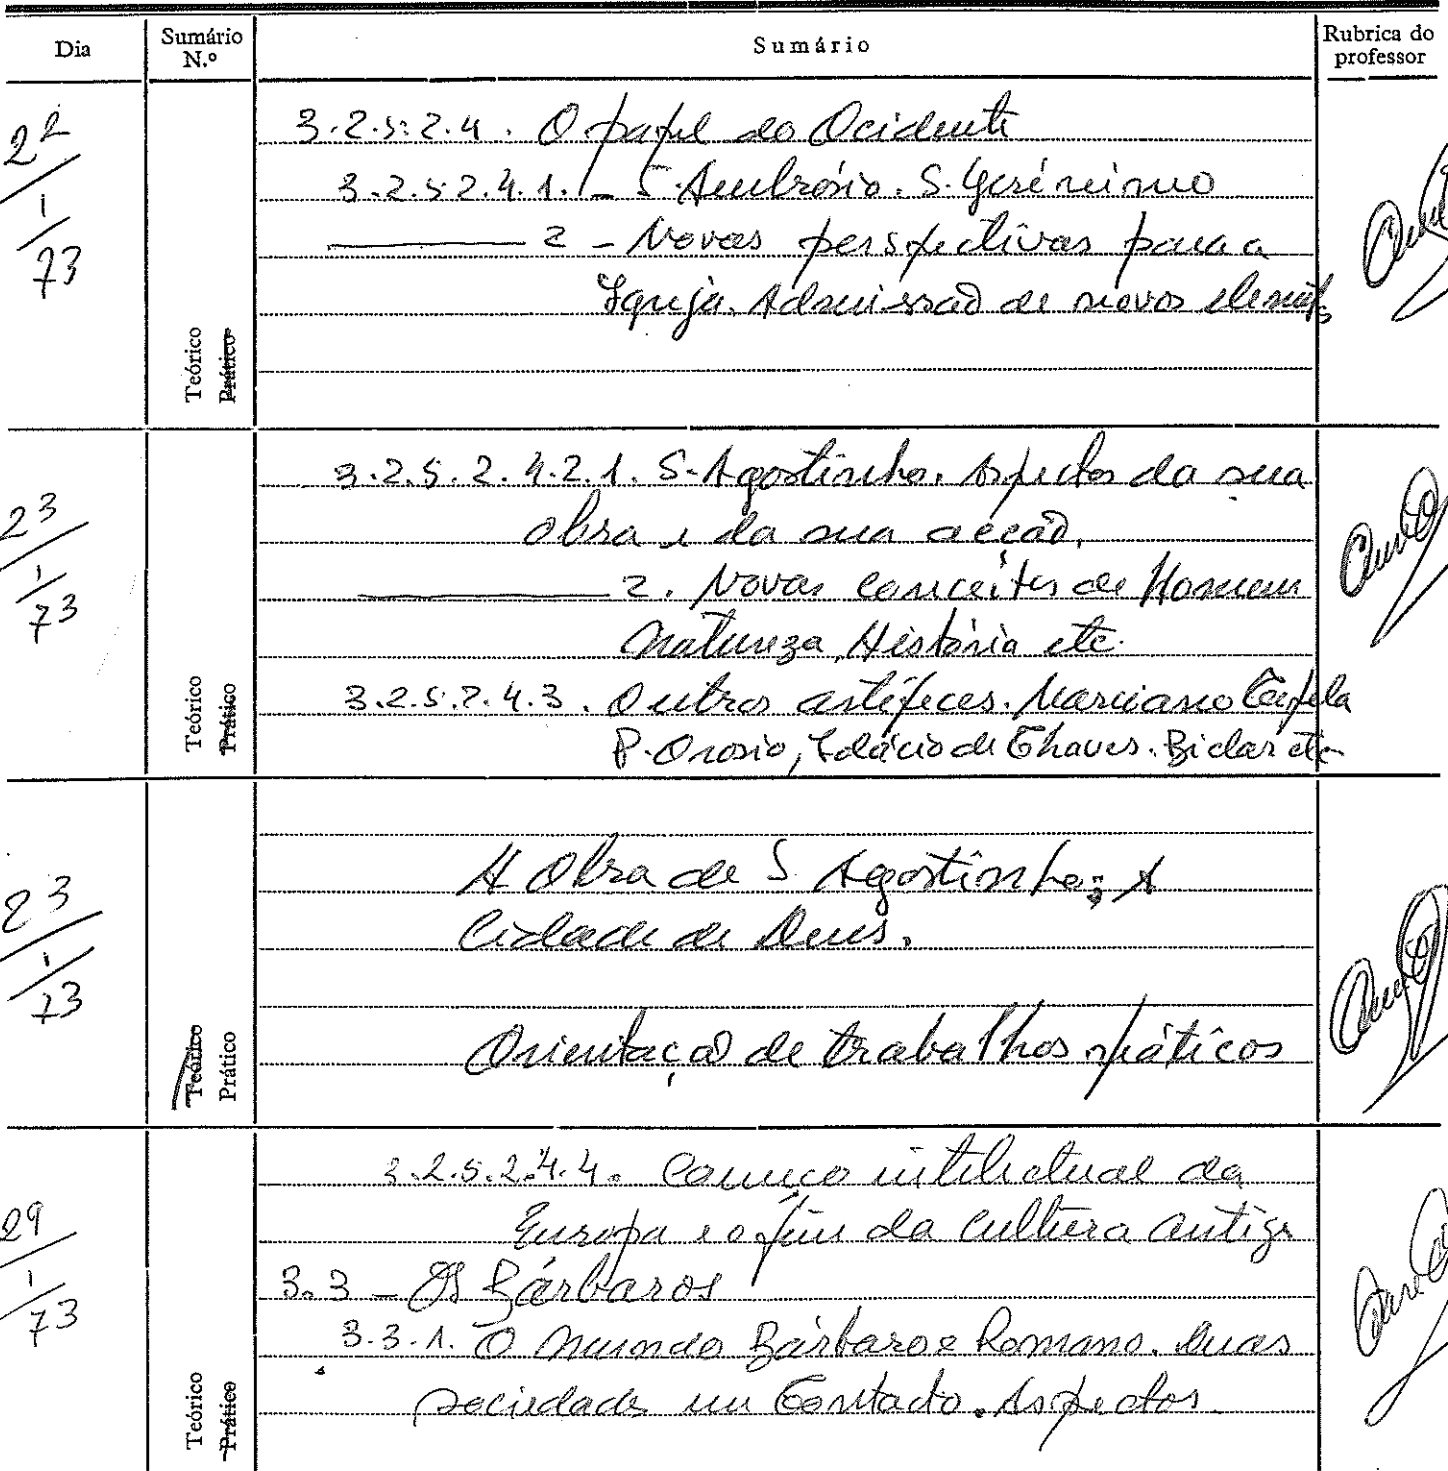 Dia Sumário N.º Sumário Rubrica do professor
22/1/73
3.2.5.2.4. O papel do Ocidente
3.2.5.2.4.1. – S. Ambrósio. S. Gerónimo
——— 2 – Novas perspectivas para a
Igreja. Admissão de novos
Teórico
Prático
23/1/73
3.2.5.2.4.2.1. S. Agostinho. Aspectos da sua
obra e da sua acção.
——— 2. Novos conceitos de Homem
Natureza, História etc.
3.2.5.2.4.3. Outros artífices. Marciano Capela
P. Orosio, Idácio de Chaves. Biclar etc
Teórico
Prático
23/1/73
A Obra de S. Agostinho: A
Cidade de Deus.
Orientação de trabalhos práticos
Teórico
Prático
29/1/73
3.2.5.2.4.4. Começo intelectual da
Europa e o fim da cultura antiga
3.3 – Os Bárbaros
3.3.1. O mundo Bárbaro e Romano. Duas
sociedades em Contacto. Aspectos.
Teórico
Prático